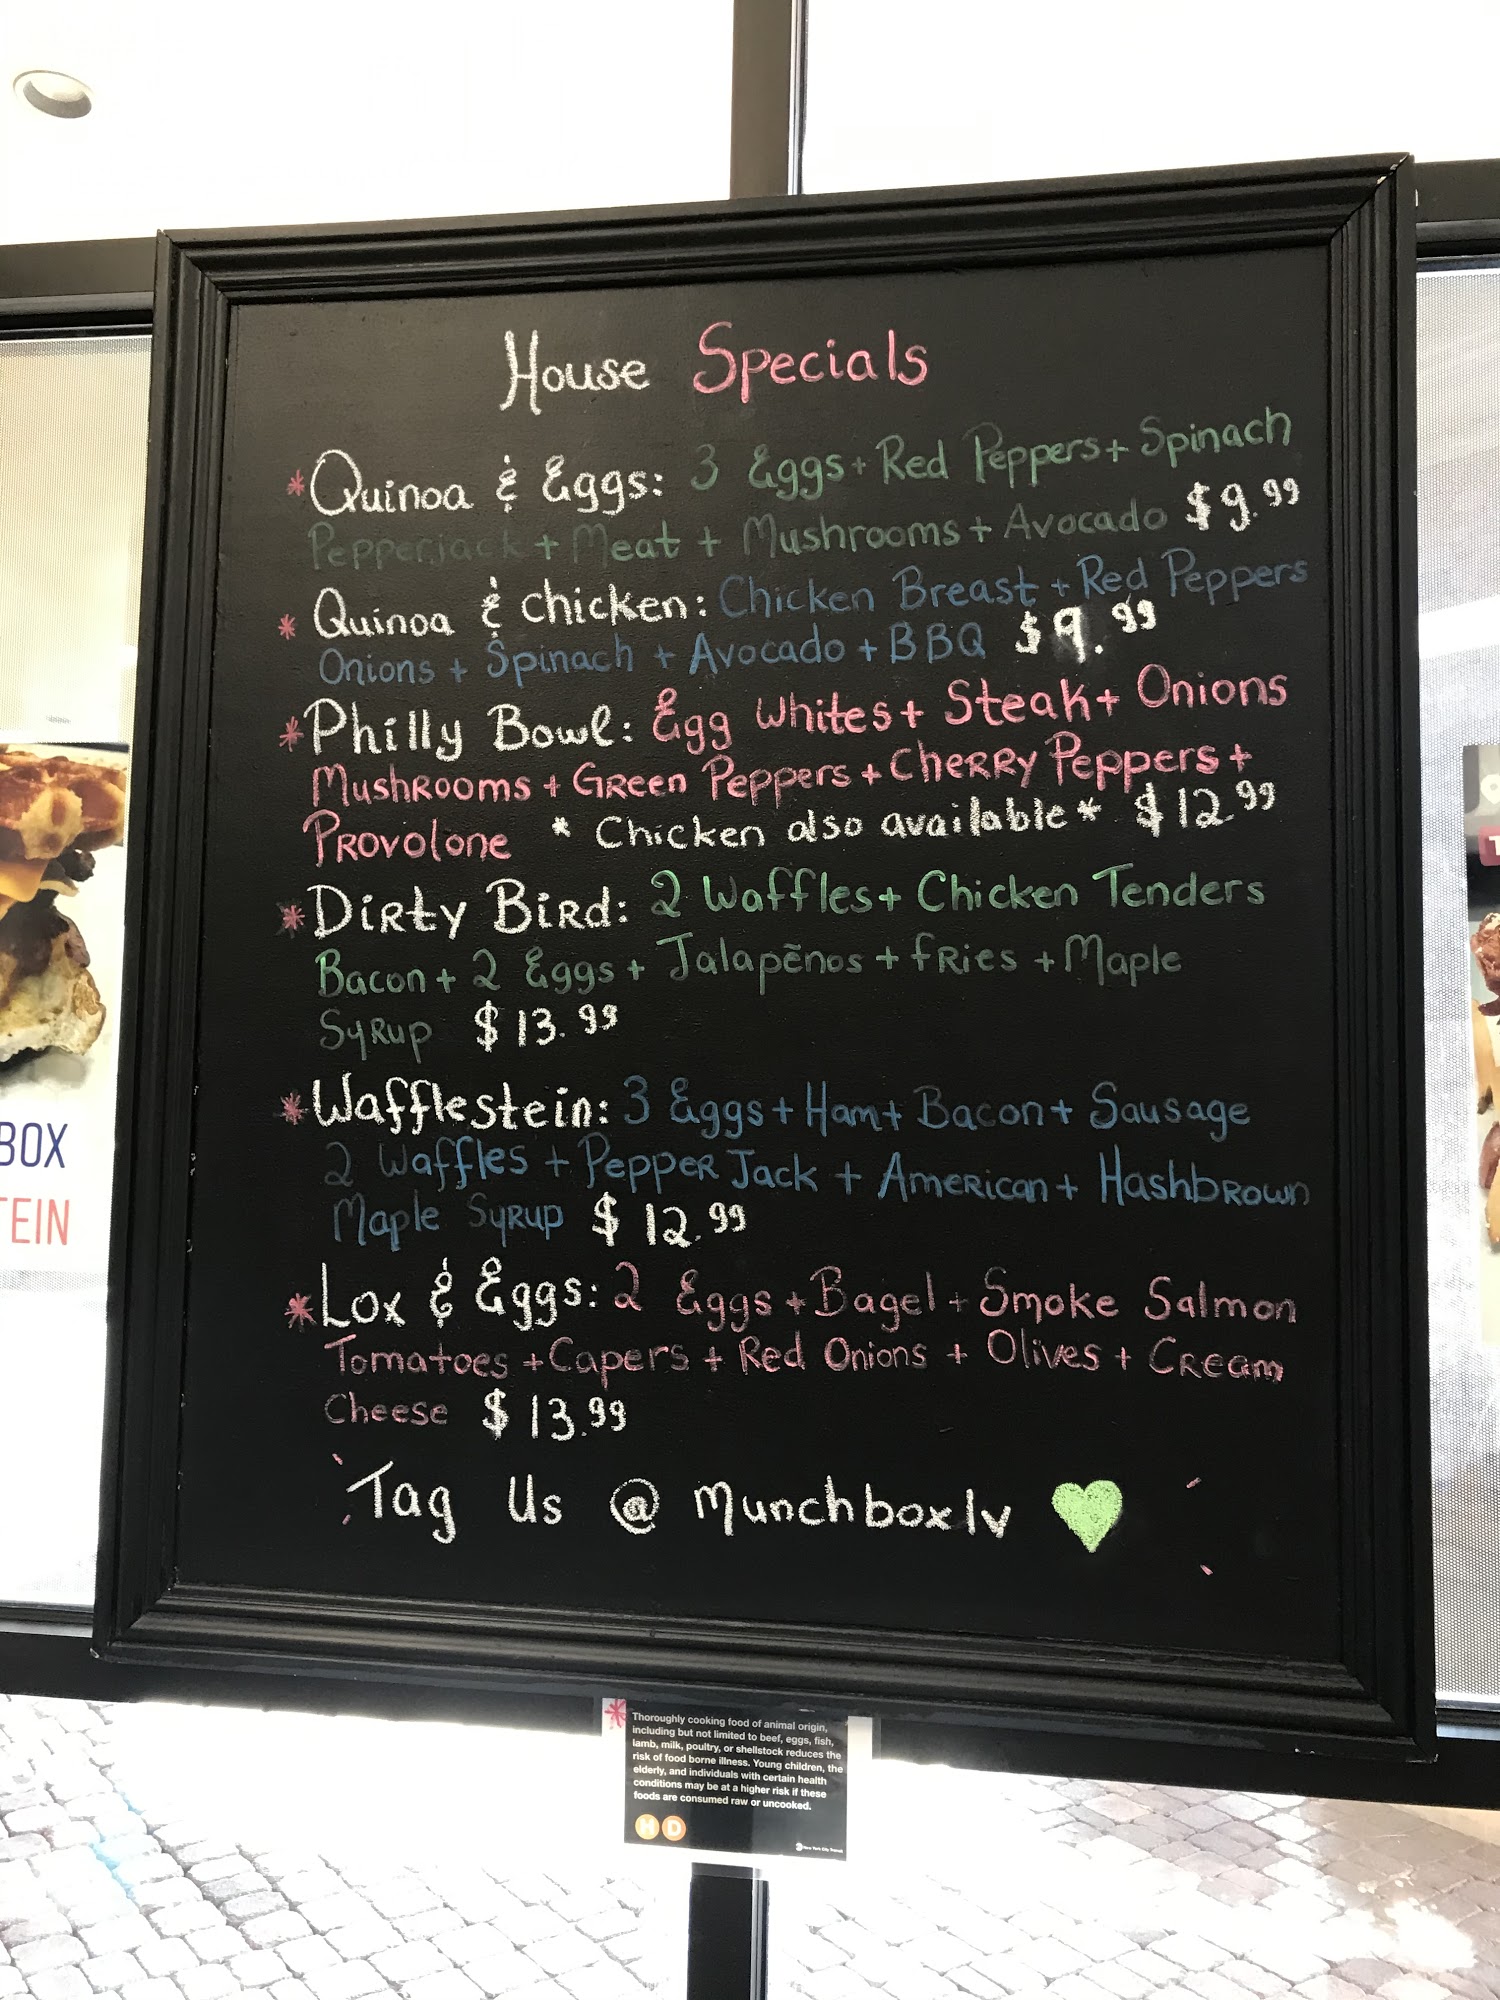 House Specials
* Quinoa & Eggs: 3 Eggs + Red Peppers + Spinach
Pepperjack + Meat + Mushrooms + Avocado $9.99
* Quinoa & Chicken: Chicken Breast + Red Peppers
Onions + Spinach + Avocado + BBQ $9.99
* Philly Bowl: Egg Whites + Steak + Onions
Mushrooms + Green Peppers + Cherry Peppers +
Provolone * Chicken also available * $12.99
* Dirty Bird: 2 Waffles + Chicken Tenders
Bacon + 2 Eggs + Jalapeños + Fries + Maple
Syrup $13.99
* Wafflestein: 3 Eggs + Ham + Bacon + Sausage
2 Waffles + Pepper Jack + American + Hashbrown
Maple Syrup $12.99
* Lox & Eggs: 2 Eggs + Bagel + Smoke Salmon
Tomatoes + Capers + Red Onions + Olives + Cream
Cheese $13.99
Tag Us @ munchboxlv
BOX
TEIN
* Thoroughly cooking food of animal origin,
including but not limited to beef, eggs, fish,
lamb, milk, poultry, or shellstock reduces the
risk of food borne illness. Young children, the
elderly, and individuals with certain health
conditions may be at a higher risk if these
foods are consumed raw or uncooked.
H D
New York City Transit